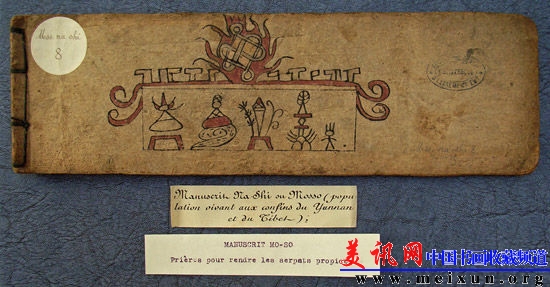 Mss na shi
8
Manuscrit Na-Shi ou Mosso (popu
lation vivant aux confins du Yunnan
et du Tibet);
MANUSCRIT MO-SO
Prières pour rendre les serpats propic
美讯网 中国书画收藏频道
www.meixun.org